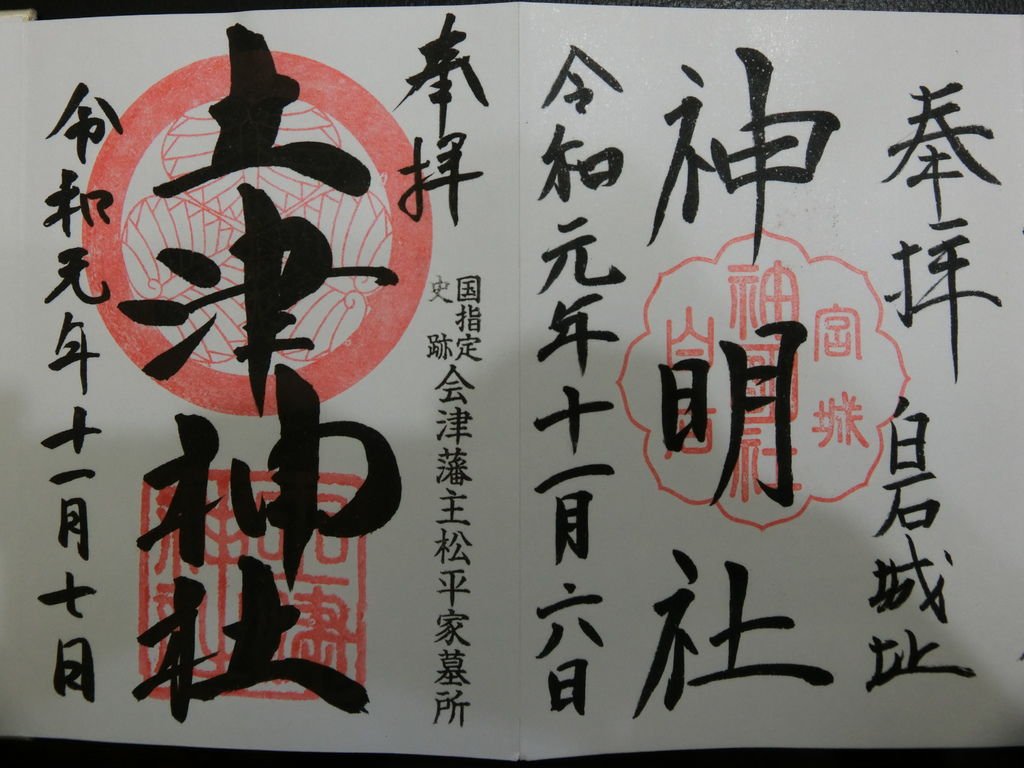 奉拝 白石城址
神明社
令和元年十一月六日
奉拝
国指定
史跡
会津藩主松平家墓所
土津神社
令和元年十一月七日
宮城
神明社
白石